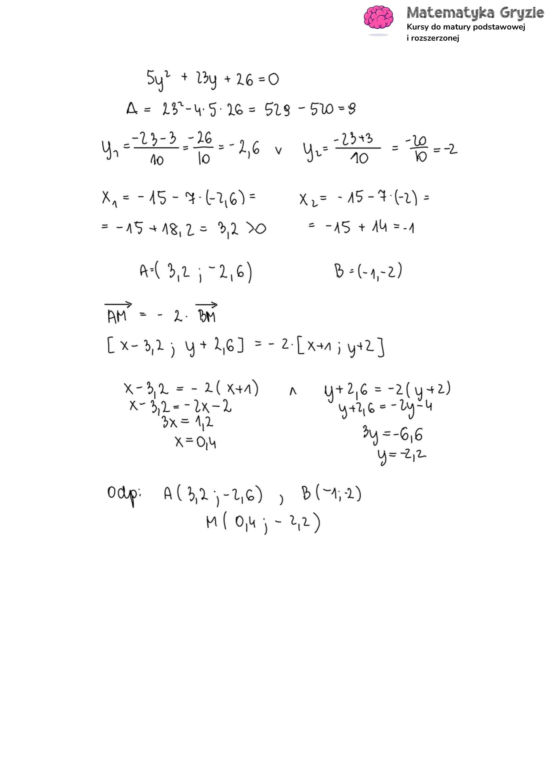 Matematyka Gryzie
Kursy do matury podstawowej
i rozszerzonej
5y² + 23y + 26 = 0
Δ = 23² - 4·5·26 = 529 - 520 = 9
y₁ = \frac{-23-3}{10} = \frac{-26}{10} = -2,6 ∨ y₂ = \frac{-23+3}{10} = \frac{-20}{10} = -2
x₁ = -15 - 7·(-2,6) = x₂ = -15 - 7·(-2) =
= -15 + 18,2 = 3,2 > 0 = -15 + 14 = -1
A = (3,2 ; -2,6) B = (-1,-2)
\overrightarrow{AM} = -2·\overrightarrow{BM}
[x-3,2 ; y+2,6] = -2·[x+1 ; y+2]
x-3,2 = -2(x+1) ∧ y+2,6 = -2(y+2)
x-3,2 = -2x-2 y+2,6 = -2y-4
3x = 1,2 3y = -6,6
x = 0,4 y = -2,2
Odp: A(3,2 ; -2,6) , B(-1;-2)
M(0,4 ; -2,2)